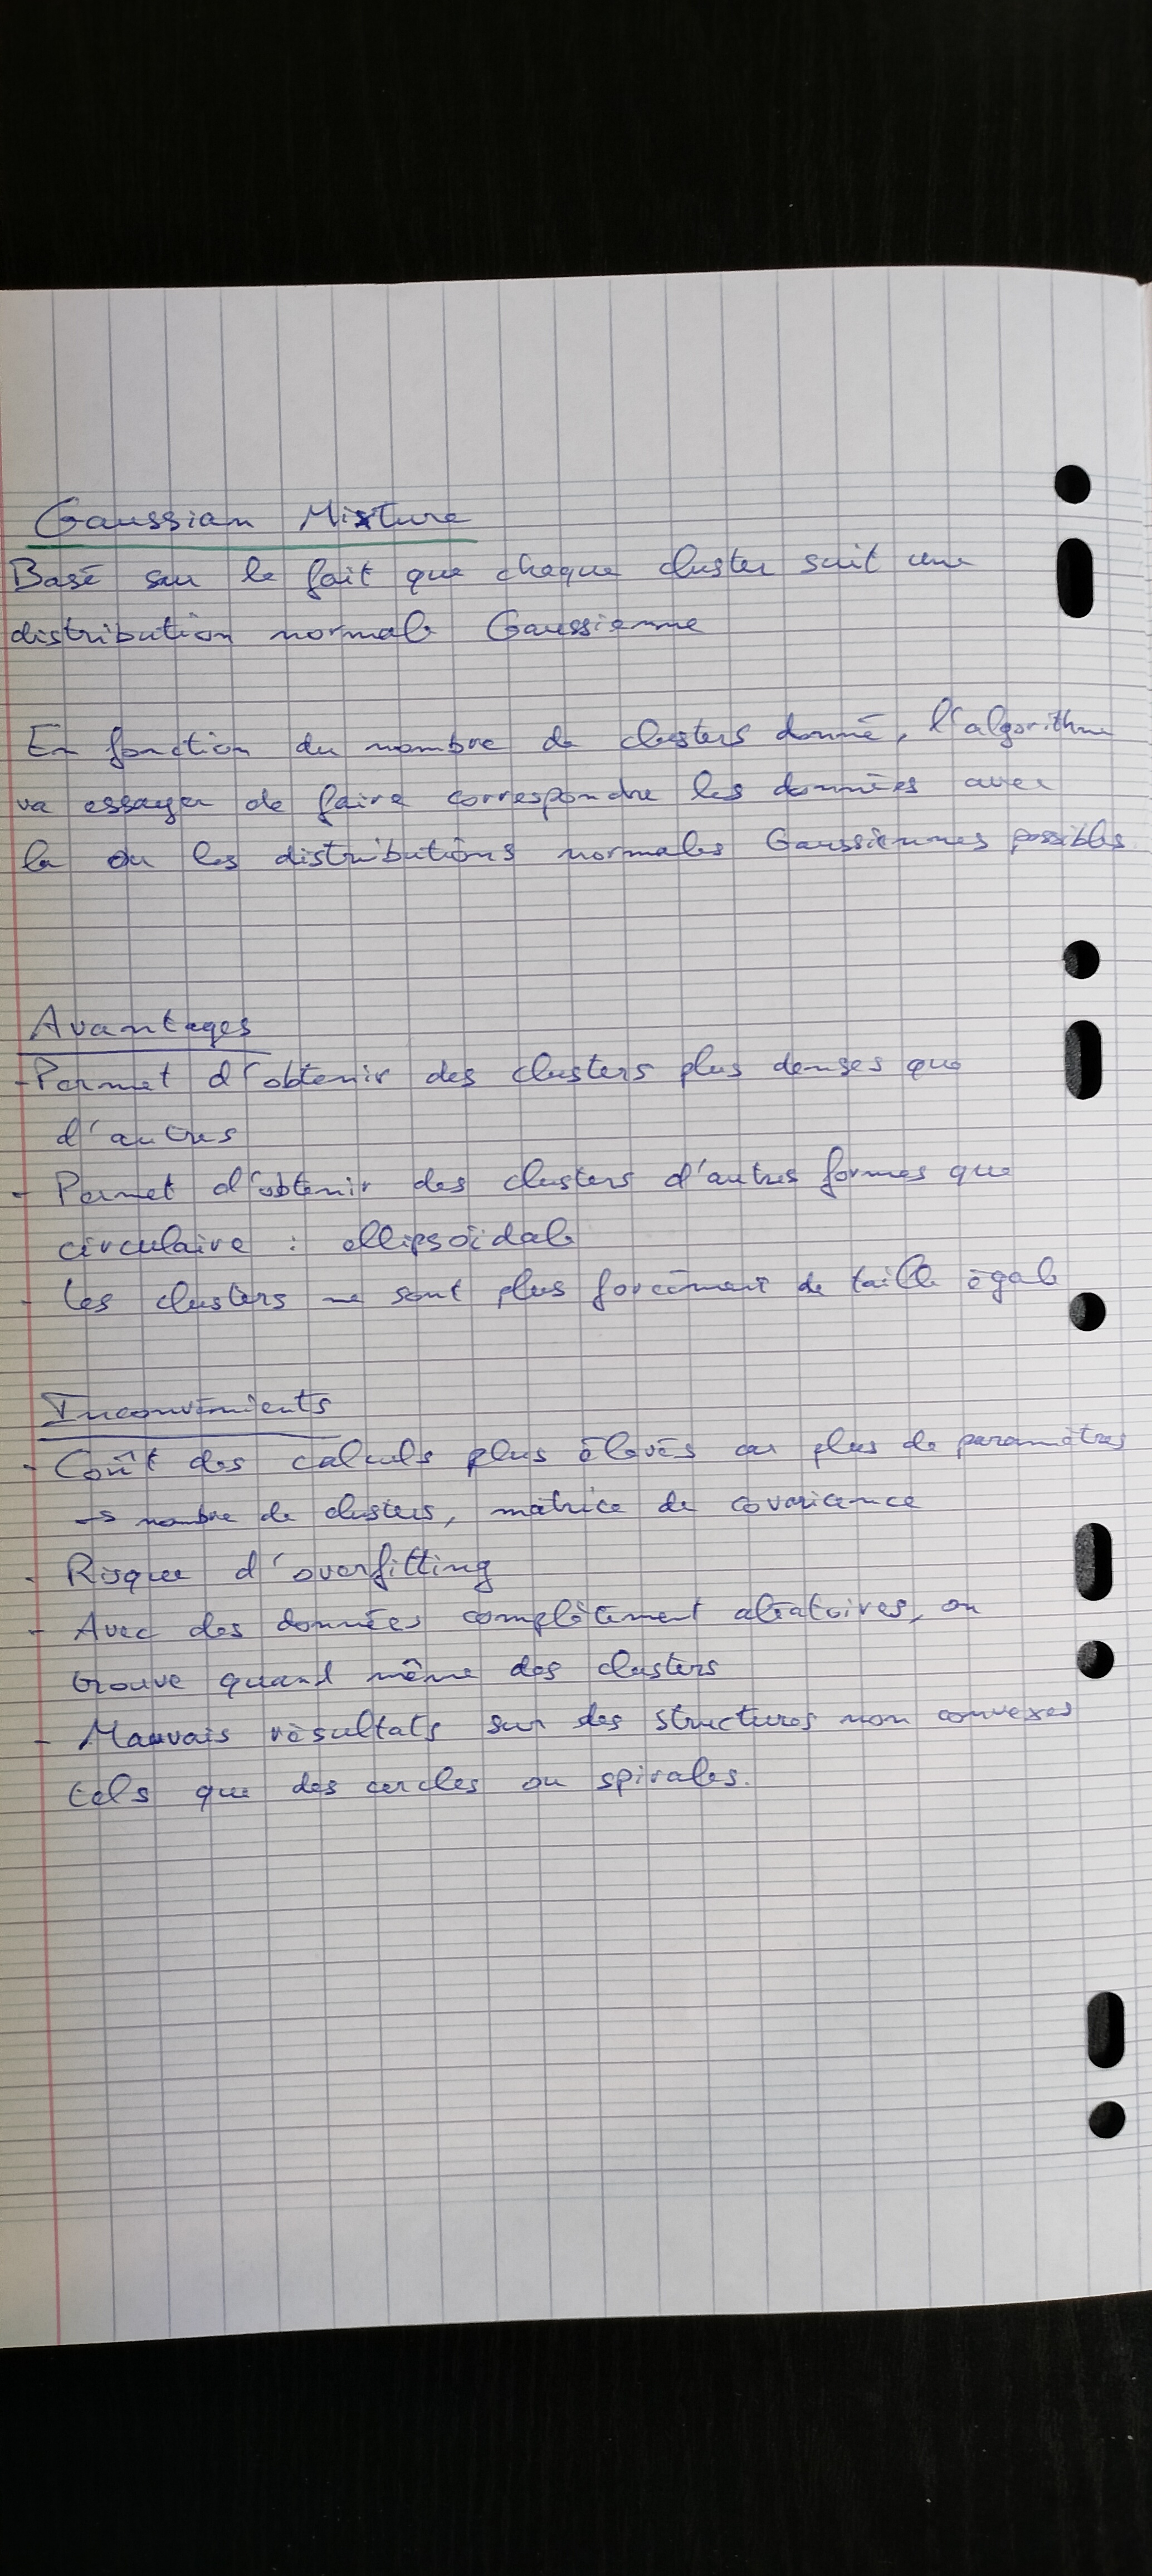 Gaussian Mixture
Basé sur le fait que chaque cluster suit une
distribution normale Gaussienne
En fonction du nombre de clusters donné, l'algorithme
va essayer de faire correspondre les données avec
la ou les distributions normales Gaussiennes possibles
Avantages
- Permet d'obtenir des clusters plus denses que
d'autres
- Permet d'obtenir des clusters d'autres formes que
circulaire : ellipsoïdale
- Les clusters ne sont plus forcément de taille égale
Inconvénients
- Coût des calculs plus élevés car plus de paramètres
→ nombre de clusters, matrice de covariance
- Risque d'overfitting
- Avec des données complètement aléatoires, on
trouve quand même des clusters
- Mauvais résultats sur des structures non convexes
tels que des cercles ou spirales.